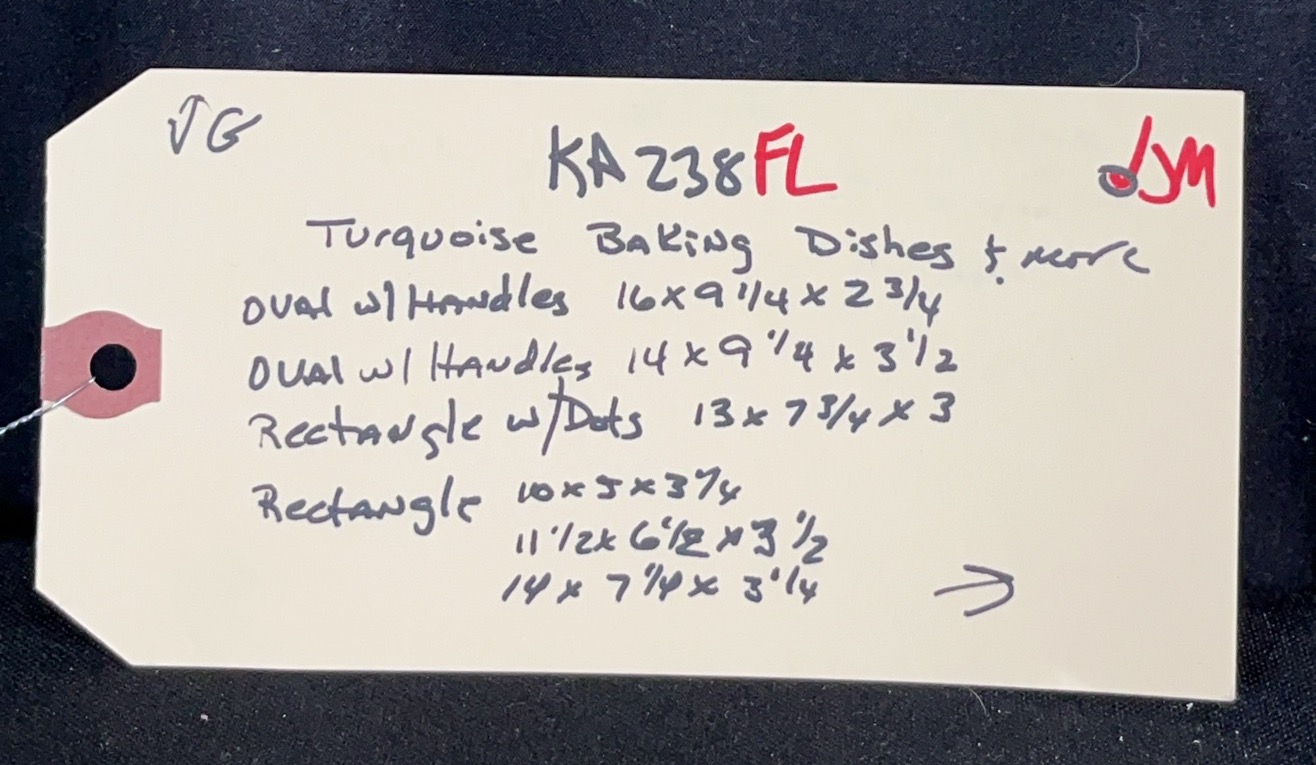 JG
KA238FL
JM
Turquoise Baking Dishes & more
Oval w/ Handles 16 x 9 1/4 x 2 3/4
Oval w/ Handles 14 x 9 1/4 x 3 1/2
Rectangle w/Dots 13 x 7 3/4 x 3
Rectangle 10 x 5 x 3 1/4
11 1/2 x 6 1/2 x 3 1/2
14 x 7 1/4 x 3 1/4
→